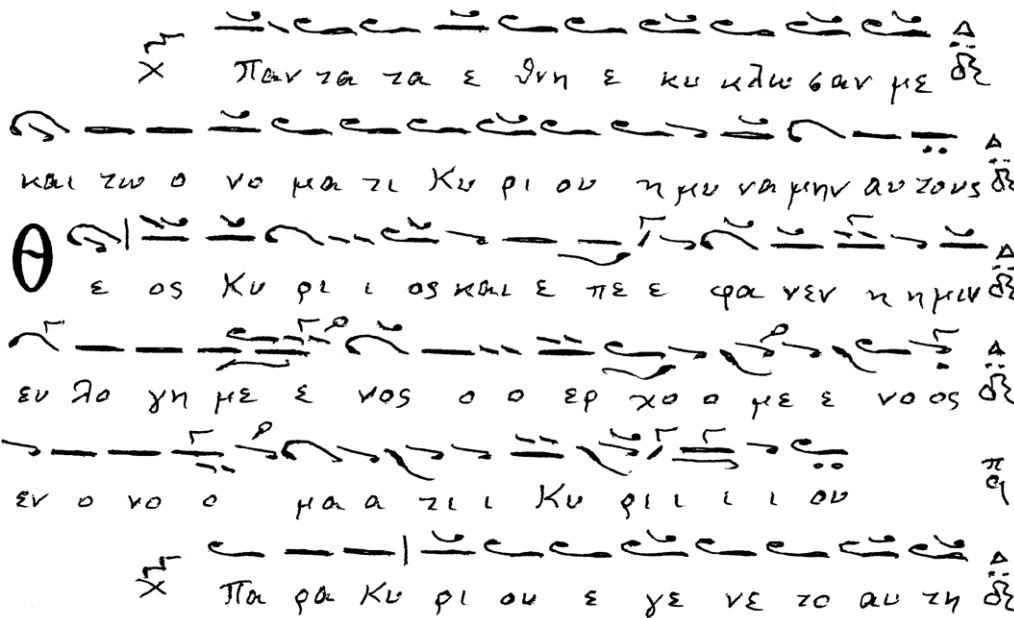 Παν τα τα ε θνη ε κυ κλω σαν με
και τω ο νο μα τι Κυ ρι ου η μυ να μην αυ τους
Θ ε ος Κυ ρι ι ος και ε πε ε φα νεν η ημιν
ευ λο γη με ε νος ο ο ερ χο ο με ε νο ος
εν ο νο ο μα α τι ι Κυ ρι ι ι ι ου
Πα ρα Κυ ρι ου ε γε νε το αυ τη